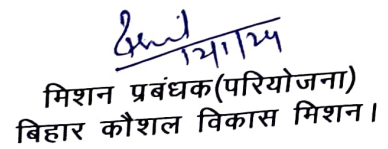 12/1/24
मिशन प्रबंधक(परियोजना)
बिहार कौशल विकास मिशन।